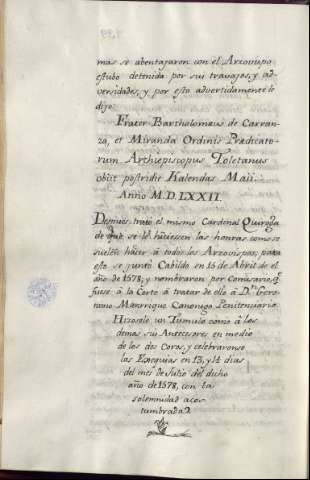 mas se abentajaron con el Arzovispo
estubo detenida por sus travajos, y ad-
versidades, y por esto advertidamente le
dijo:
Frater Bartholomeus de Carran-
za, et Miranda Ordinis Prædicato-
rum Archiepiscopus Toletanus
obiit postridie Kalendas Maii.
Anno M.D.LXXII.
Despues trató el mismo Cardenal Quiroga
de que se le hiciesen las honras como se
suelen hacer à todos los Arzovispos, para
esto se juntó Cabildo en 15 de Abril de el
año de 1578, y nombraron por Comisario q.
fuese à la Corte à tratar de ello à Dn. Gero-
nimo Manrrique Canonigo Penitenciario.
Hizosele un Tumulo como à los
demas sus Antecesores en medio
de los dos Coros, y celebraronse
las Exequias en 13, y 14 dias
del mes de Julio del dicho
año de 1578, con la
solemnidad acos-
tumbrada.